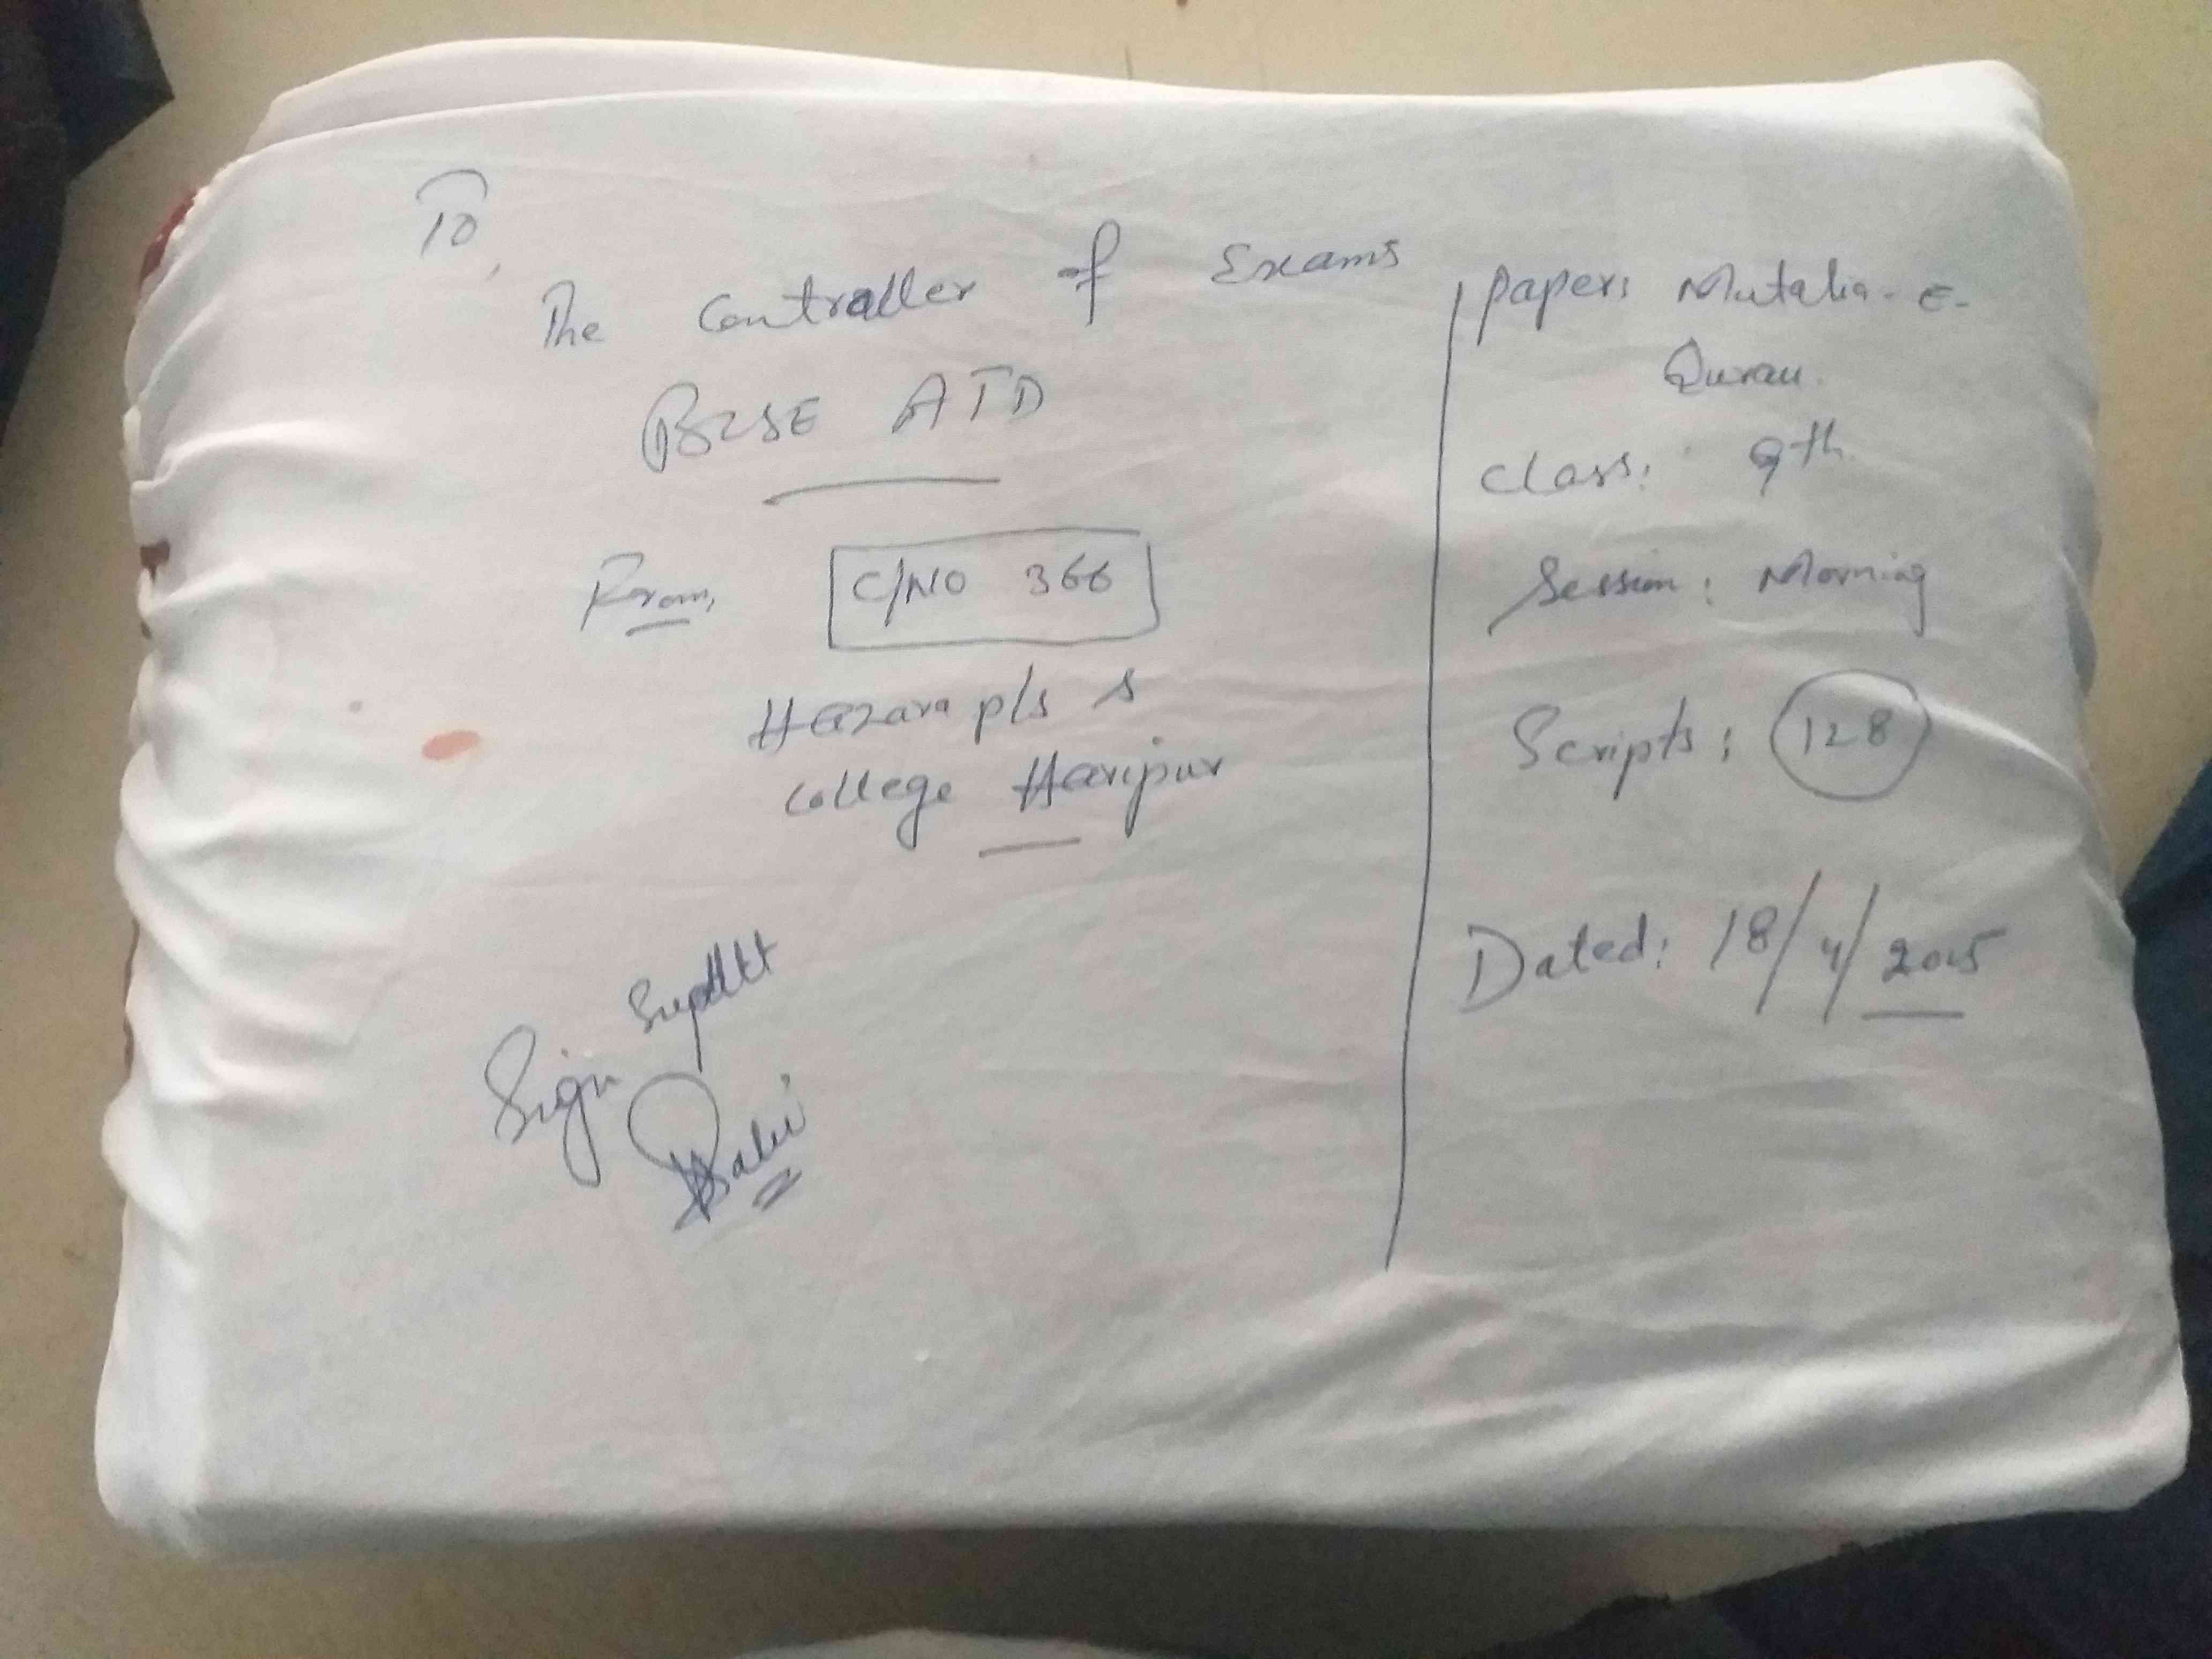 To,
The Controller of Exams
BISE ATD
From, C/NO 366
Hazara p/s &
College Haripur
Sign Supdtt
Paper: Mutalia-e-
Quran.
Class: 9th
Session: Morning
Scripts: 128
Dated: 18/4/2025